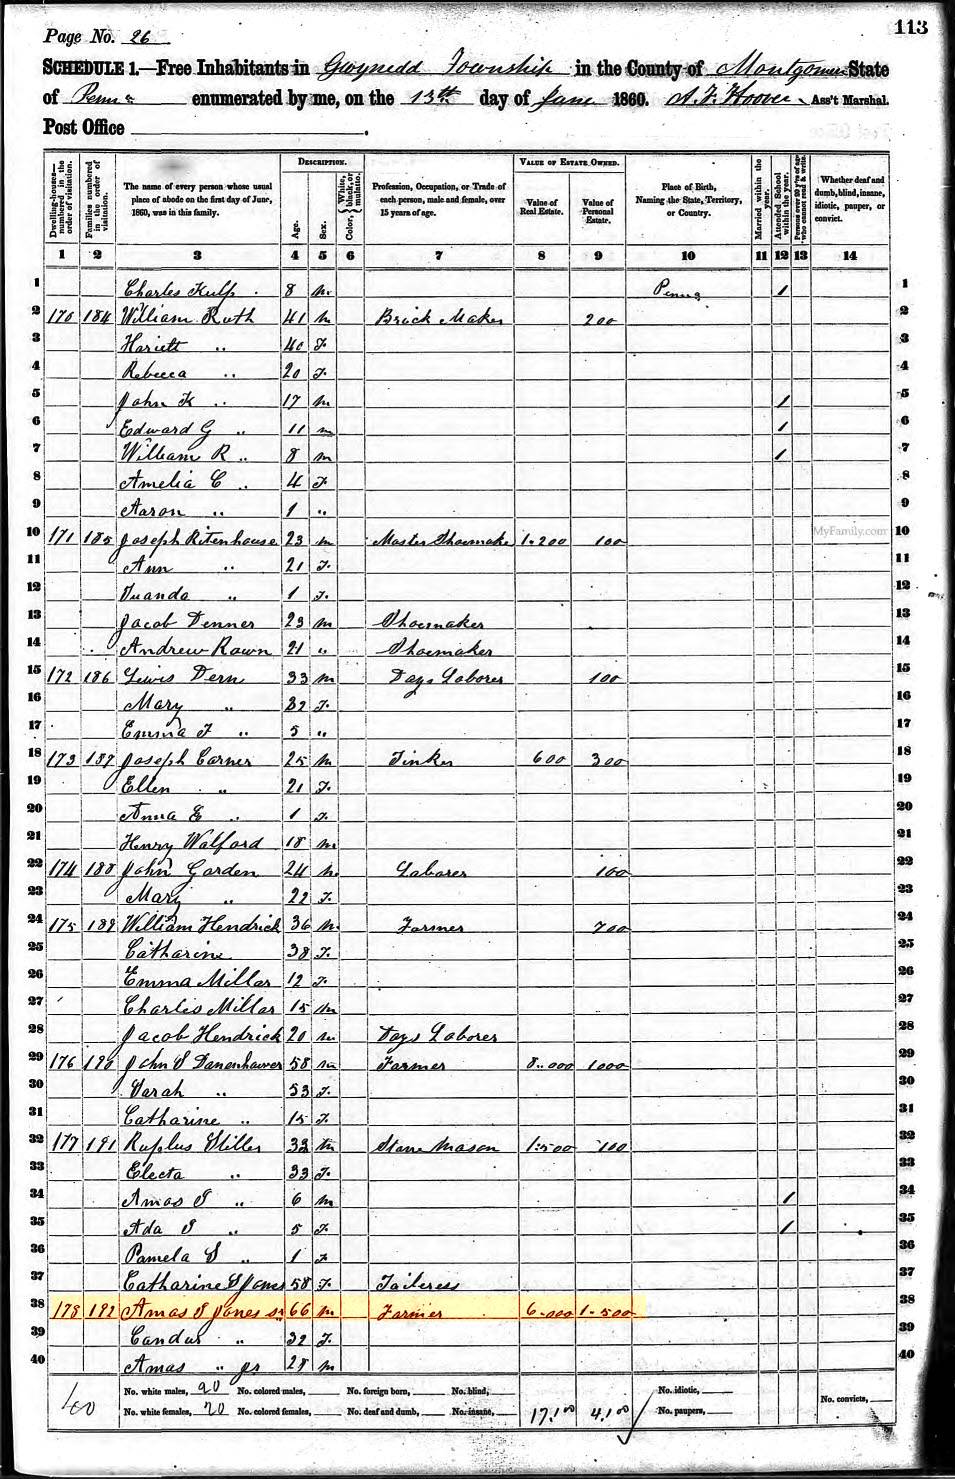 113
Page No. 26
SCHEDULE 1.—Free Inhabitants in Gwynedd Township in the County of Montgomery State
of Penna enumerated by me, on the 13th day of June 1860. A. F. Hoover Ass't Marshal.
Post Office
DESCRIPTION. VALUE OF ESTATE OWNED.
Dwelling-houses—numbered in the order of visitation. Families numbered in the order of visitation. The name of every person whose usual place of abode on the first day of June, 1860, was in this family. Age. Sex. Color, White, black, or mulatto. Profession, Occupation, or Trade of each person, male and female, over 15 years of age. Value of Real Estate. Value of Personal Estate. Place of Birth, Naming the State, Territory, or Country. Married within the year. Attended School within the year. Persons over 20 y'rs of age who cannot read & write. Whether deaf and dumb, blind, insane, idiotic, pauper, or convict.
1 2 3 4 5 6 7 8 9 10 11 12 13 14
1 Charles Kulp 8 m Penna 1 1
2 170 184 William Ruth 41 m Brick Maker 200 2
3 Hariett " 40 F. 3
4 Rebecca " 20 F. 4
5 John K " 17 m 1 5
6 Edward G " 11 m 1 6
7 William R " 8 m 1 7
8 Amelia C " 4 F 8
9 Aaron " 1 " 9
10 171 185 Joseph Ritenhouse 23 m Master Shoemake 1.200 100 MyFamily.com 10
11 Ann " 21 F. 11
12 " 1 F. 12
13 Jacob Denner 23 m Shoemaker 13
14 Andrew Rawn 21 " Shoemaker 14
15 172 186 Lewis Dern 33 m Days Laborer 100 15
16 Mary " 32 F. 16
17 Emma F " 5 " 17
18 173 187 Joseph Carner 25 m Tinker 600 300 18
19 Ellen " 21 F. 19
20 Anna E " 1 F. 20
21 Henry Walford 18 m 21
22 174 188 John Garden 24 m Laborer 100 22
23 Mary " 22 F. 23
24 175 189 William Hendrick 36 m Farmer 700 24
25 Catharine 38 F. 25
26 Emma Millar 12 F. 26
27 Charles Millar 15 m 27
28 Jacob Hendrick 20 m Days Laborer 28
29 176 190 John S Danenhower 58 m Farmer 8..000 1000 29
30 Sarah " 53 F. 30
31 Catharine " 15 F. 31
32 177 191 Stiller 33 m Stone Mason 1.500 100 32
33 Electa " 33 F. 33
34 Amos J " 6 m 1 34
35 Ada S " 5 F. 1 35
36 Pamela S " 1 F 36
37 Catharine S Jones 58 F. Taileress 37
38 178 192 Amos J Jones sr 66 m Farmer 6.000 1.500 38
39 Candus " 32 F. 39
40 Amos " jr 28 m 40
40 No. white males, 20 No. colored males, No. foreign born, No. blind, No. idiotic,
No. white females, 20 No. colored females, No. deaf and dumb, No. insane, 17.100 4.100 No. paupers, No. convicts,